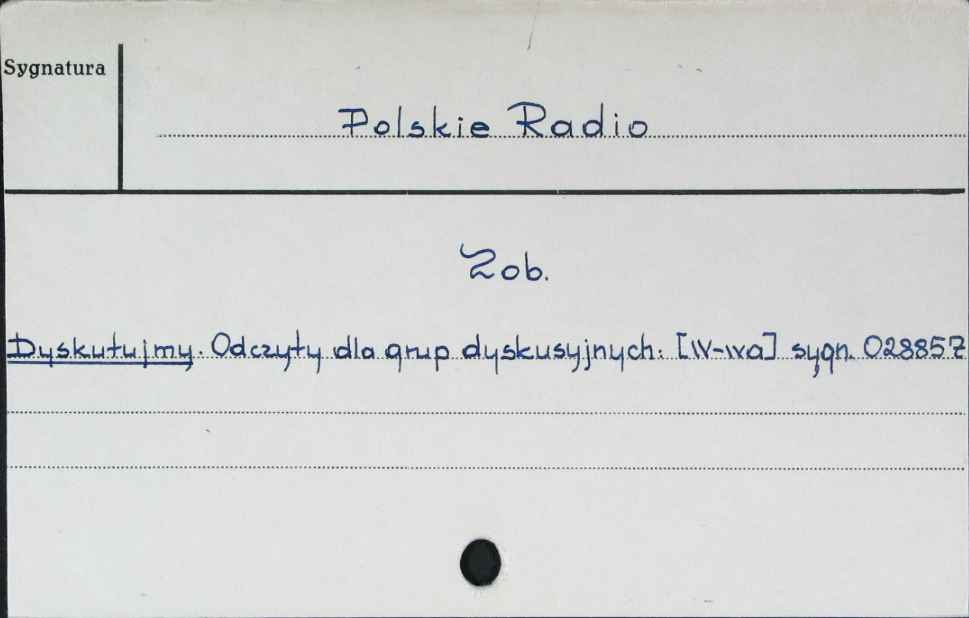 Sygnatura
Polskie Radio
Zob.
Dyskutujmy. Odczyty dla grup dyskusyjnych. [W-wa] sygn. 028857